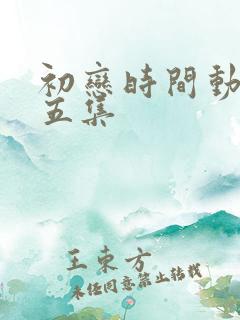 初戀時間動
五集
王東方
未经同意禁止转载